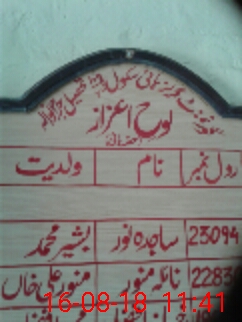 گورنمنٹ گرلز ہائی سکول
تحصیل
لوح اعزاز
رول نمبر نام ولدیت
23094 ساجدہ نور بشیر محمد
2283 نائلہ منور منور علی خاں
16-08-18 11:41